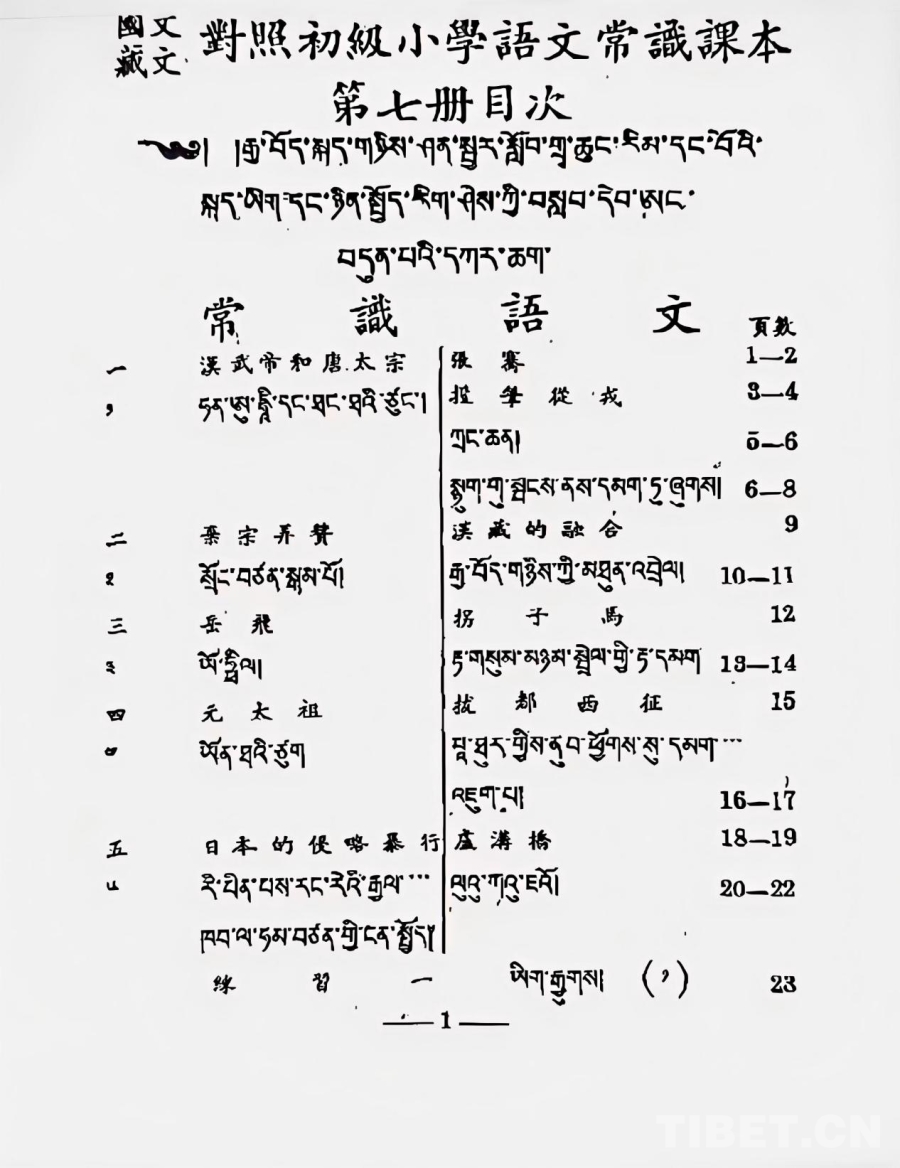 國文
藏文
對照初級小學語文常識課本
第七册目次
༄༅། །རྒྱ་བོད་སྐད་གཉིས་ཤན་སྦྱར་སློབ་གྲྭ་ཆུང་རིམ་དང་བོའི་
སྐད་ཡིག་དང་ཉིན་སྤྱོད་རིག་ཤེས་ཀྱི་བསླབ་དེབ་ཨང་
བདུན་པའི་དཀར་ཆག་
常識 語文 頁數
一 漢武帝和唐太宗 張騫 1—2
༡ ཧན་ཨུ་ཏྲཱི་དང་ཐང་ཐའི་ཙུང་། 投筆從戎 3—4
ཀྲང་ཆན། 5—6
སྨྱུག་གུ་སྤངས་ནས་དམག་ཏུ་ཞུགས། 6—8
二 棄宗弄贊 漢藏的融合 9
༢ སྲོང་བཙན་སྒམ་པོ། རྒྱ་བོད་གཉིས་ཀྱི་མཐུན་འབྲེལ། 10—11
三 岳飛 拐子馬 12
༣ རྟ་གསུམ་མཉམ་སྦྲེལ་གྱི་རྟ་དམག 13—14
四 元太祖 拔都西征 15
༤ ཡོན་ཐའི་ཙུག པཱ་ཐུར་གྱིས་ནུབ་ཕྱོགས་སུ་དམག་…
འཇུག་པ། 16—17
五 日本的侵略暴行 盧溝橋 18—19
༥ རི་པིན་པས་རང་རེའི་རྒྱལ་… ལུའུ་ཀའུ་ཇའོ། 20—22
ཁབ་ལ་ཧམ་བཙན་གྱི་ངན་སྤྱོད།
練習一 ཡིག་རྒྱུགས། (༡) 23
— 1 —
TIBET.CN